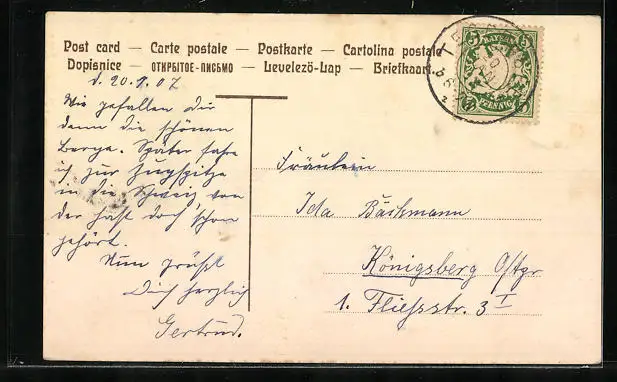 Post card — Carte postale — Postkarte — Cartolina postale
Dopisnice — ОТКРЫТОЕ-ПИСЬМО — Levelezö-Lap — Briefkaart
d. 20.9.07
Wie gefallen dir
denn die schönen
Berge. Später fahre
ich zur Zugspitze
in die Schweiz von
der hast doch schon
gehört.
Nun grüßt
Dich herzlich
Gertrud.
BAYERN
5 5
PFENNIG
Fräulein
Ida Bäckmann
Königsberg Ostpr
1. Fliessstr. 3 I